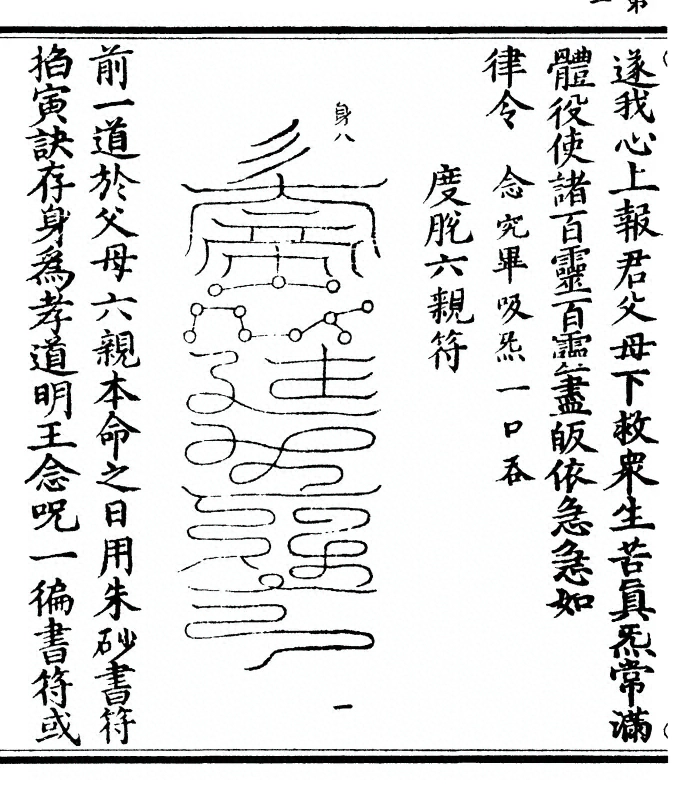 遂我心上報君父母下救衆生苦眞炁常滿
體役使諸百靈百靈盡皈依急急如
律令 念究畢吸炁一口吞
度脫六親符
身八
一
前一道於父母六親本命之日用朱砂書符
掐寅訣存身爲孝道明王念呪一徧書符或